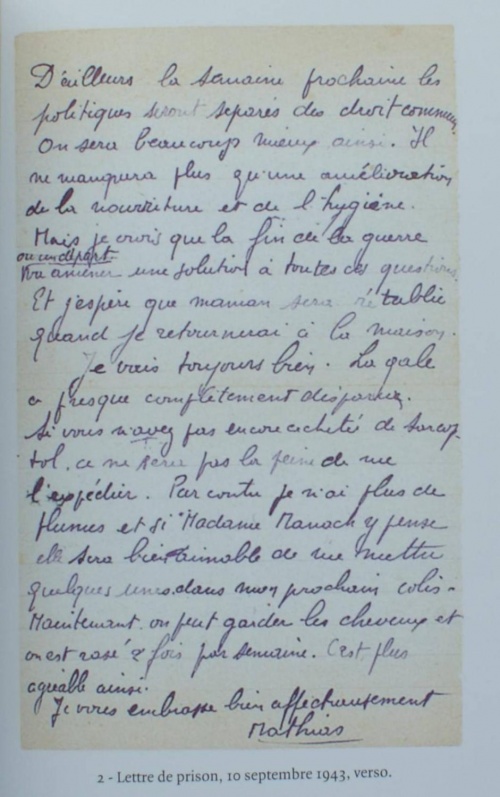 D'ailleurs la semaine prochaine les
politiques seront séparés des droit commun.
On sera beaucoup mieux ainsi. Il
ne manquera plus qu'une amélioration
de la nourriture et de l'hygiène.
Mais je crois que la fin de la guerre
ou un départ
va amener une solution à toutes ces questions.
Et j'espère que maman sera rétablie
quand je retournerai à la maison.
Je vais toujours bien. La gale
a presque complètement disparue.
Si vous n'avez pas encore acheté de Sarcop-
tol, ce ne sera pas la peine de me
l'expédier. Par contre je n'ai plus de
plumes et si Madame Manoch y pense
elle sera bien aimable de me mettre
quelques unes dans mon prochain colis.
Maintenant on peut garder les cheveux et
on est rasé 2 fois par semaine. C'est plus
agréable ainsi.
Je vous embrasse bien affectueusement
Mathias
2 - Lettre de prison, 10 septembre 1943, verso.